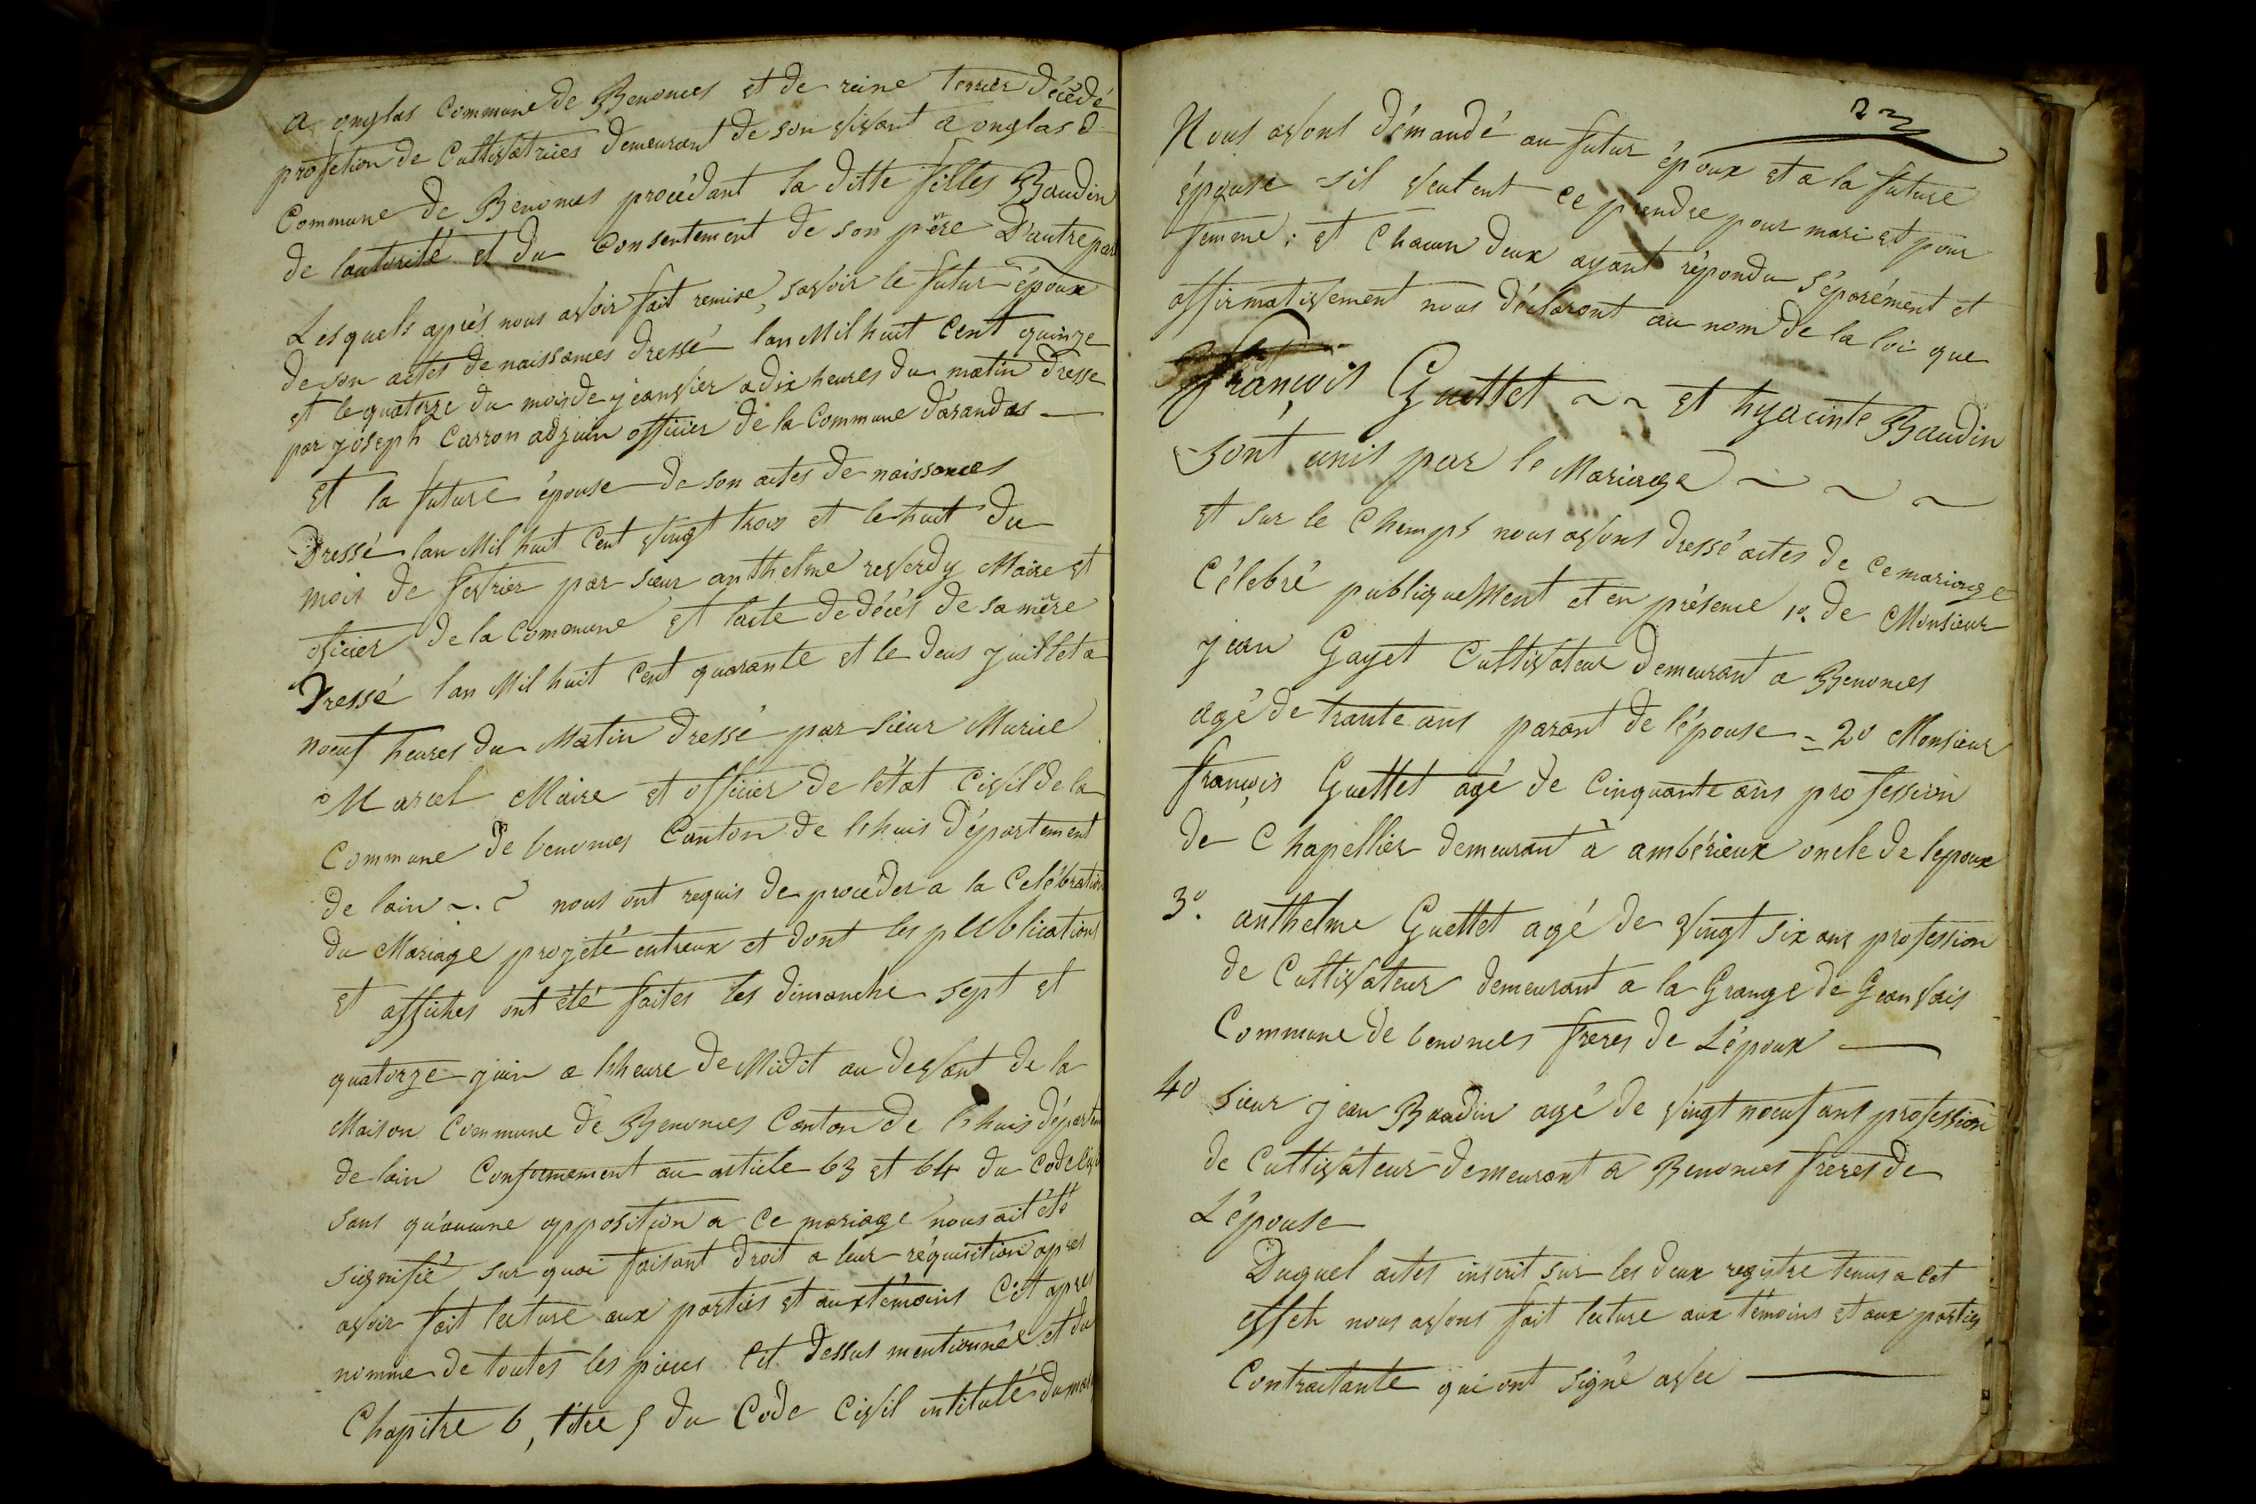 a onglas Commune de Benonces et de reine terrier décédé
profetion de Cultivatrices demeurant de son vivant a onglas d
Commune de Benonces procédant la ditte filles Baudin
de lautorité et du Consentement de son père D'autre par
Lesquels après nous avoir fait remise, savoir le futur époux
de son actes de naissances dressé lan Mil huit Cent quinze
et le quatorze du mois de jeanvier a dix heures du matin dressé
par joseph Carron adjuin officier de la Commune d'arandas
Et la future épouse de son actes de naissances
Dressé lan Mil huit Cent vingt trois et le huit du
mois de fevrier par sieur anthelme reverdy Maire et
oficier de la Commune et lacte de décés de sa mère
Dressé lan Mil huit Cent quarante et le deus juillet a
noeuf heures du Matin dressé par sieur Murice
Marcel Maire et officier de l'état Civil de la
Commune de benonces Canton de lhuis département
de lain nous ont requis de procéder a la Celébration
du Mariage projeté entreux et dont les publications
et affiches ont été faites les dimanche sept et
quatorze juin a lheure de Midit au devant de la
Maison Commune de Benonces Canton de lhuis départem
de lain Conformement au article 63 et 64 du Code Civi
sans qu'aucune opposition a ce mariage nous ait été
signifié sur quoi faisant droit a leur réquisition apres
avoir fait lecture aux parties et aux témoins Cit apres
nimme de toutes les pieces Cit dessus mentionnée et du
Chapitre 6, titre 5 du Code Civil intitulé du mari
23
Nous avons démandé au futur époux et a la future
épouse sil veulent ce prendre pour mari et pour
femme; et Chacun deux ayant répondu séparément et
affirmativement nous déclaront au nom de la loi que
François Guettet ~ ~ et hyacinte Baudin
sont unis par le Mariage ~ ~ ~
et sur le Champs nous avons dressé actes de ce mariage
Célebré publiquement et en présence 1º. de Monsieur
jean Gayet Cultivateur demeurant a Benonces
agé de trante ans parant de lépouse = 2º Monsieur
françois Guettet agé de Cinquante ans profession
de Chapellier demeurant à ambérieux oncle de lepoux
3º. anthelme Guettet agé de vingt six ans profession
de Cultivateur demeurant a la Grange de Geanvais
Commune de benonces freres de Lépoux
4º Sieur jean Baudin agé de vingt noeuf ans profession
de Cultivateur demeurant a Benonces freres de
L'épouse
Duquel actes inscrit sur les deux registre tenus a Cet
effeh nous avons fait lecture aux témoins et aux parties
Contractante qui ont signé avec